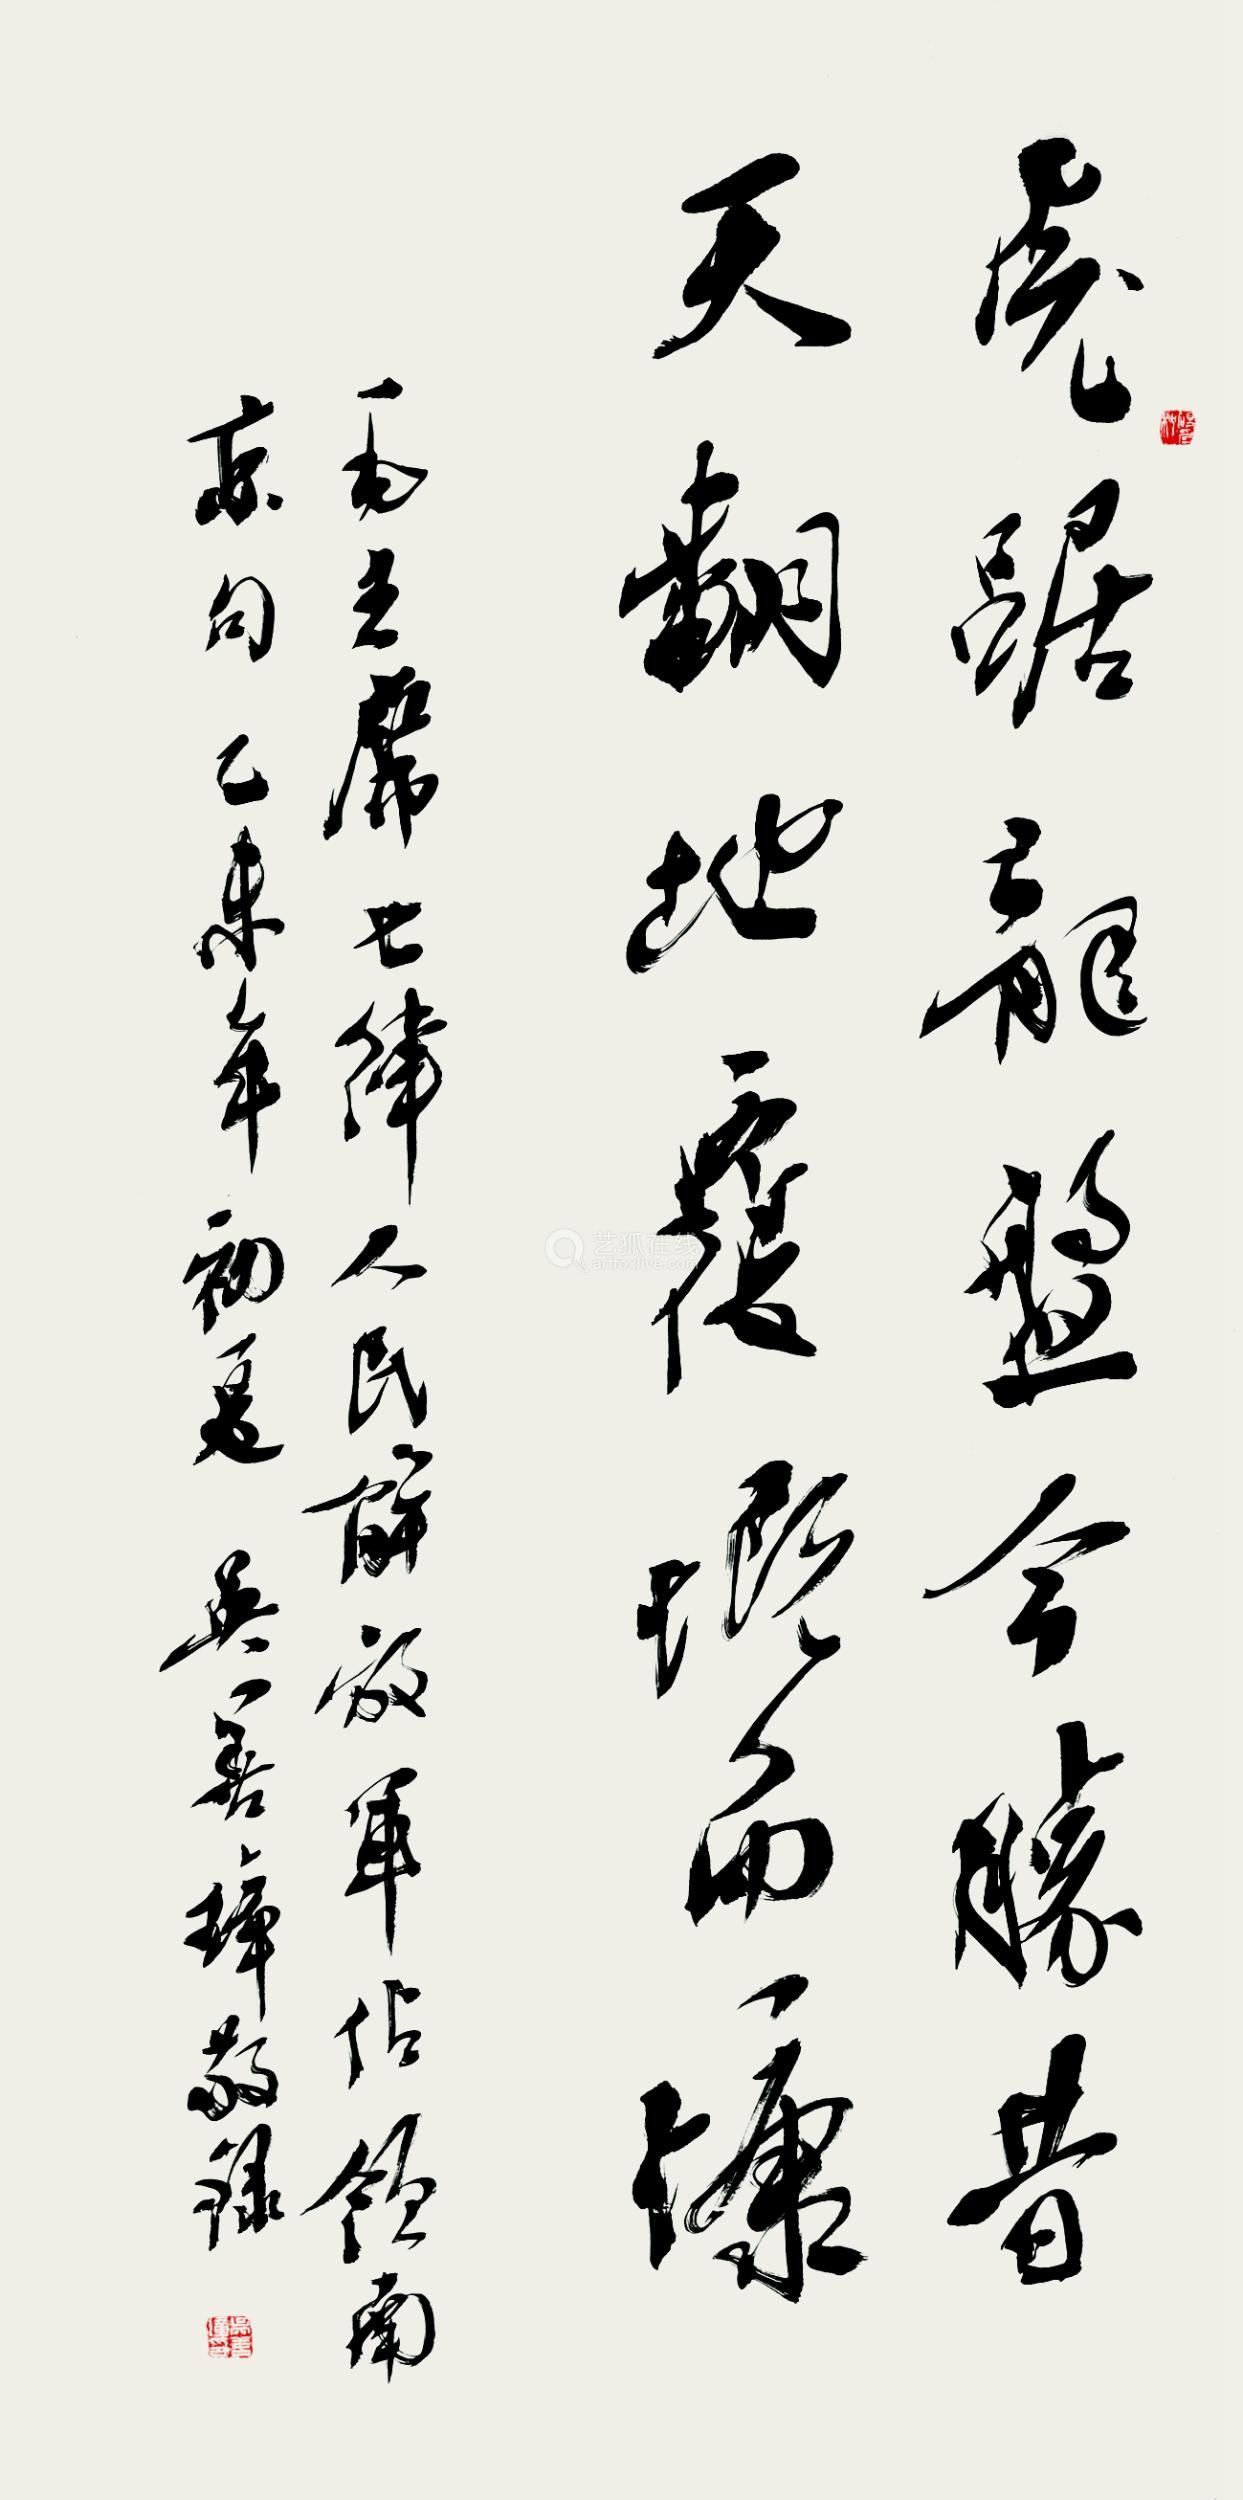 虎踞龙盘今胜昔
天翻地覆慨而慷
毛主席七律人民解放军占领南
京句 己未年初夏 吴善璋敬录
艺狐在线
artfoxlive.com